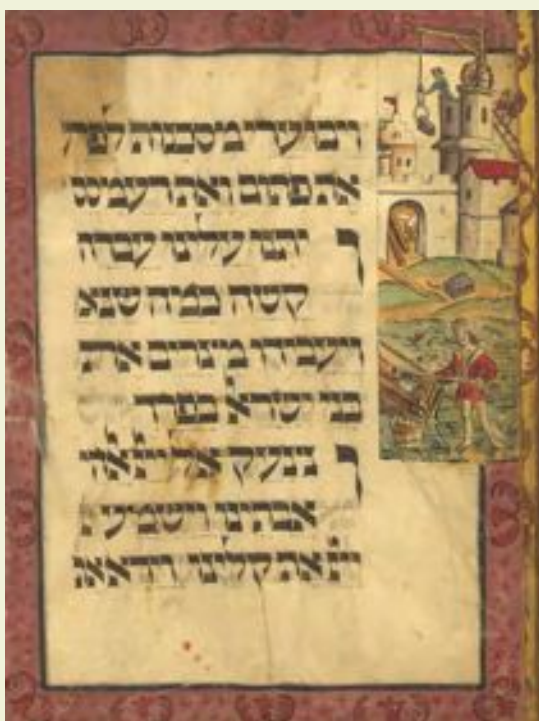 ויבן ערי מסכנות לפר
את פתום ואת רעמסס
ויתנו עלינו עבדה
קשה כמה שנא
ויעבידו מצרים את
בני ישרא בפרך
ונצעק אל יי אלהי
אבתינו וישמע
יי את קלינו וירא את